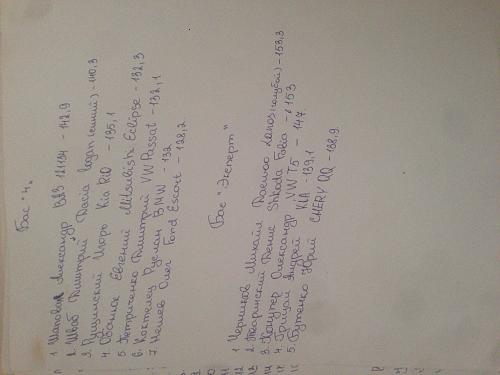 Бас "4"
1 Шаповал Александр ВАЗ 21134 - 142,9
2. Швab Дмитрий Dacia logan (синий) - 140,3
3. Пушинский Игорь Kia Rio - 135,1
4. Евгений Mitsubishi Eclipse - 132,3
5 Петриченко Дмитрий VW Passat - 132,1
6. Коктелец Руслан BMW - 132
7 Нешев Олег Ford Escort - 128,2
Бас "Эксперт"
1 Черников Михаил Daewoo Lanos (голубой) - 158,3
2. Тваринский Денис Shkoda Fabia - 153
3. Александр VW T5 - 147
4. Грицай Андрей KIA - 139,1
5. Бутенко Юрий CHERY QQ - 138,9